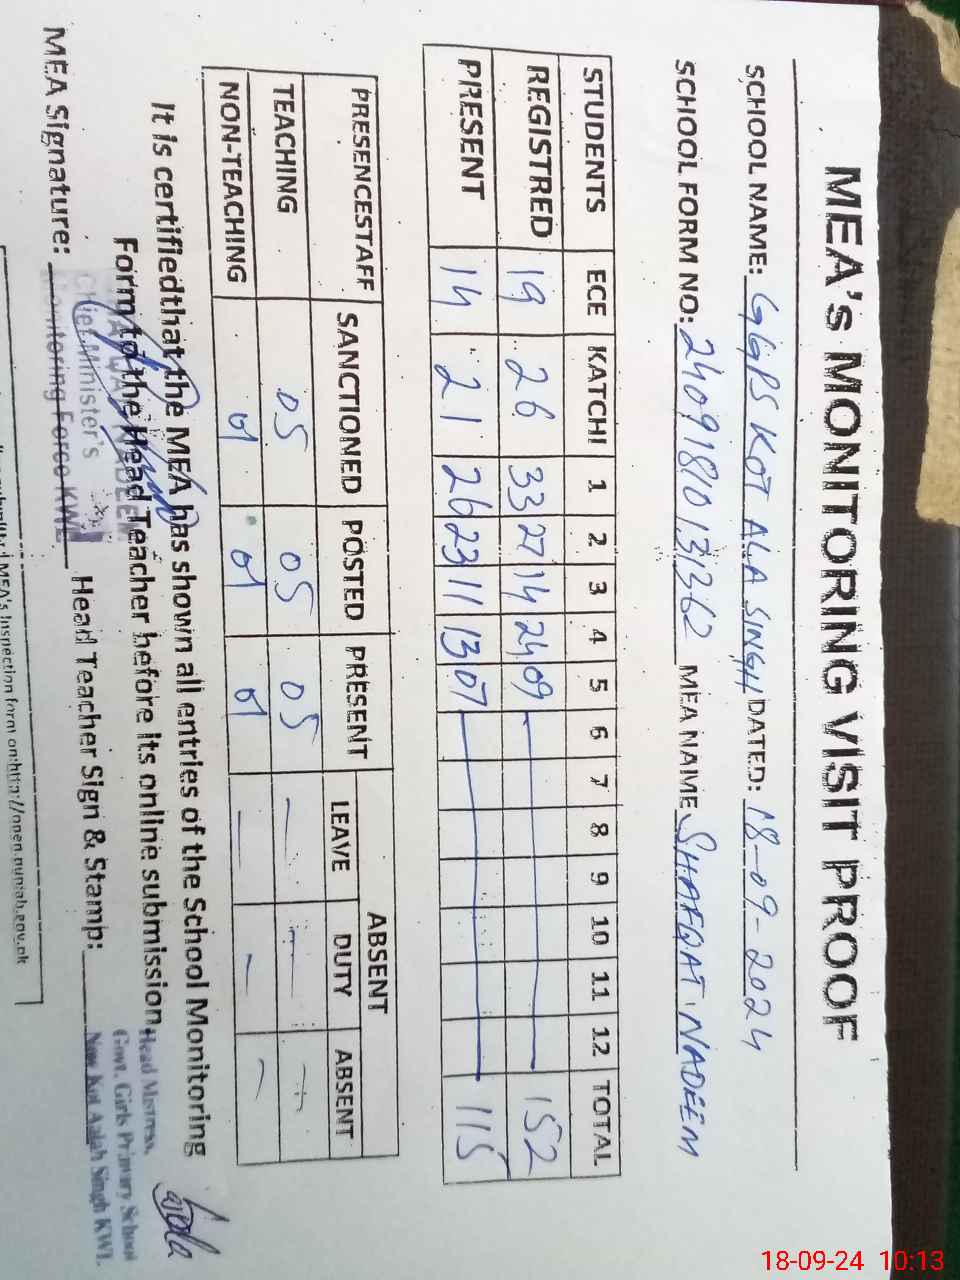 MEA's MONITORING VISIT PROOF
SCHOOL NAME: GGPS KOT ALA SINGH DATED: 18-09-2024
SCHOOL FORM NO: 24091818013 1362 MEA NAME SHAFQAT NADEEM
STUDENTS ECE KATCHI 1 2 3 4 5 6 7 8 9 10 11 12 TOTAL
REGISTRED 19 26 33 27 14 24 09 152
PRESENT 14 21 26 23 11 13 07 115
PRESENCESTAFF SANCTIONED POSTED PRESENT ABSENT
LEAVE DUTY ABSENT
TEACHING 05 05 05 — — —
NON-TEACHING 01 01 01 — — —
It is certifiedthat the MEA has shown all entries of the School Monitoring
Form to the Head Teacher before its online submission.
MEA Signature: Head Teacher Sign & Stamp:
NADEEM
Chief Minister's
Monitoring Force KWL
Head Mistress,
Govt. Girls Primary School
New Kot Aalah Singh KWL
MEA's Inspection form on:http://open.punjab.gov.pk
18-09-24 10:13